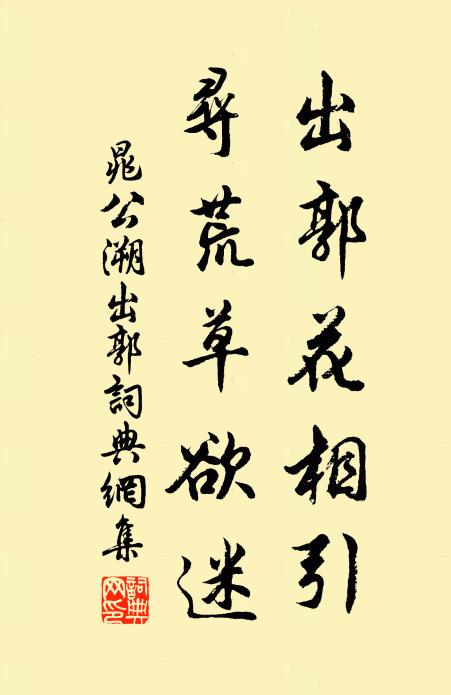 出郭花相引
尋荒草欲迷
晁公溯出郭詞典網集
詞典網印